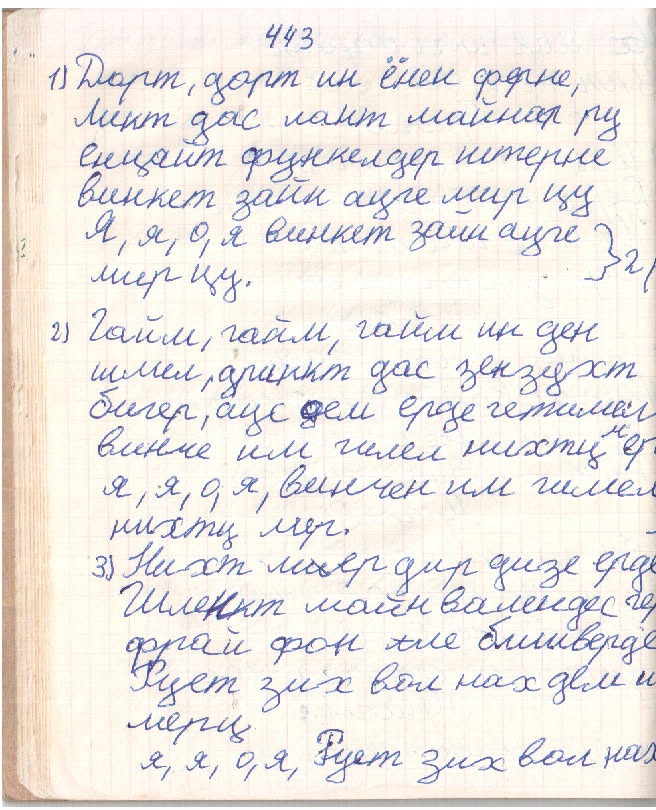 443
1) Дорт, дорт ин ёнен ферне,
Ликт дас лант майнер ру
енцайт функелдер штерне
винкет зайн ауге мир цу
Я, я, о, я винкет зайн ауге
мир цу. } 2
2) Гайм, гайм, гайм ин ден
шмел, дринкт дас зензухт
бигер, аус дем ерде гетимел
винче им гимел нихтц м
я, я, о, я, винчен им гимел
нихтц мер.
3) Нихт меер дир дизе ерде
Шленкт майн валендес гер
фрай фон але бишверде
Гует зих вол нах дем
мерц
я, я, о, я, Гует зих вол нах